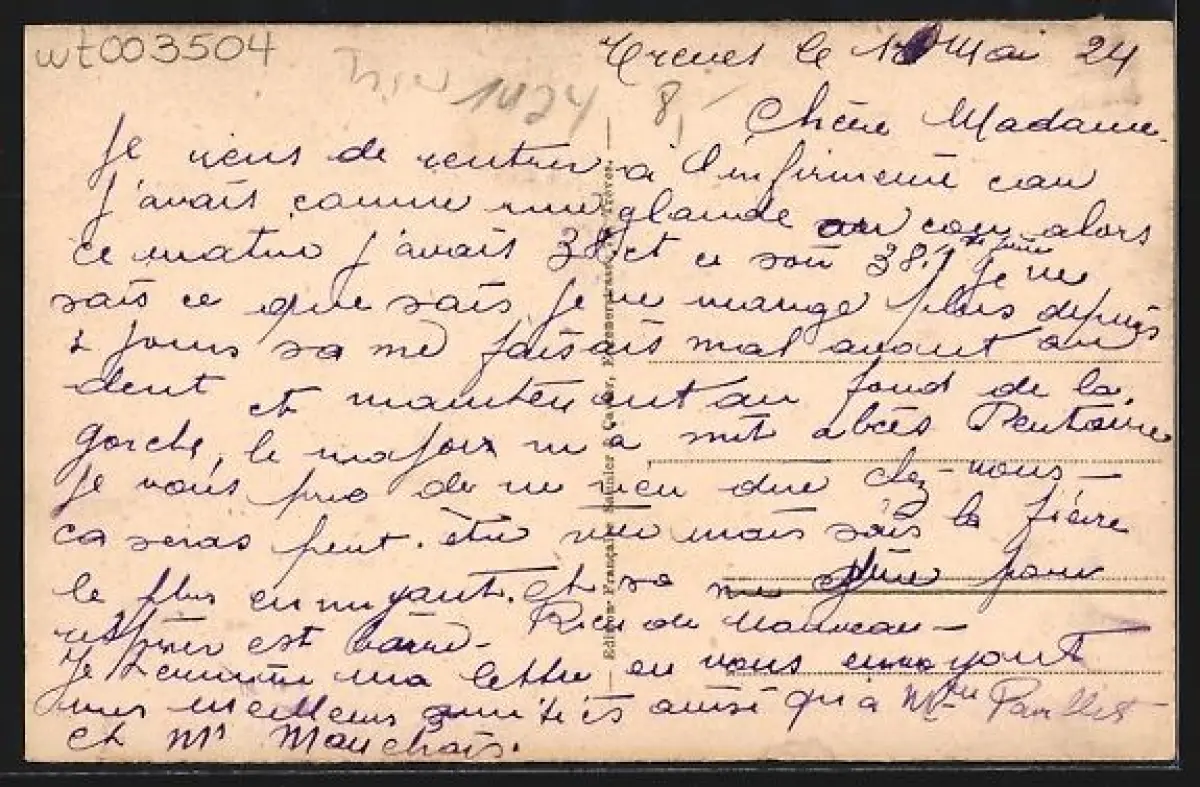 wt003504
Treves le 1 Mai 24
Trier 1924 8,-
Chère Madame
Je viens de rentrer à l'infirmerie car
j'avais comme une glande au cou alors
ce matin j'avais 38 et ce soir 38,1 Je ne
sais ce que sais, je ne mange plus depuis
2 jours sa me faisais mal avant au
dent et maintenant au fond de la
gorche, le major m'a mit abcès Dentaire
Je vous prie de ne rien dire chez-vous -
ca seras peut-être rien mais sais la fièvre
le plus ennuyant. et sa me gène pour
Rien de nouveau -
Je termine ma lettre en vous envoyant
mes meilleurs amitiés ainsi qu'à
et Mr Mauchais.
Edition Française Saunier &